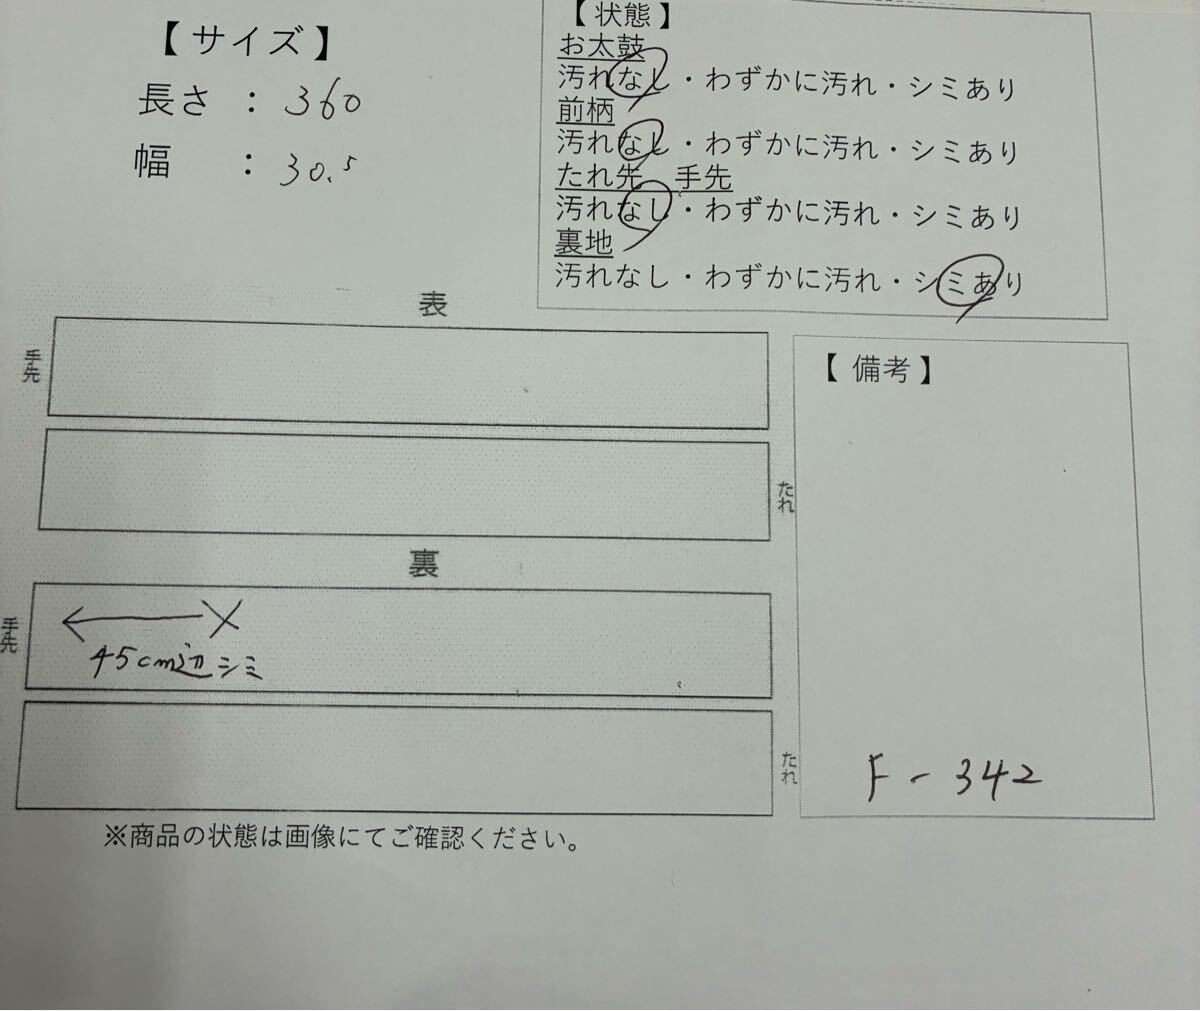 【 サイズ 】
長さ : 360
幅 : 30.5
【 状態 】
お太鼓
汚れなし・わずかに汚れ・シミあり
前柄
汚れなし・わずかに汚れ・シミあり
たれ先 手先
汚れなし・わずかに汚れ・シミあり
裏地
汚れなし・わずかに汚れ・シミあり
表
手先
たれ
裏
手先
45cm辺シミ
たれ
【 備考 】
F-342
※商品の状態は画像にてご確認ください。